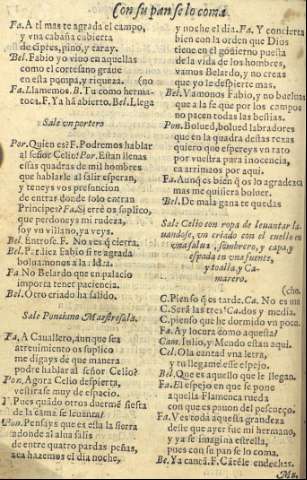 Con su pan se lo coma.
Fa. A ti mas te agrada el campo,
y vna cabaña cubierta
de cipres, pino, y taray.
Bel. Fabio yo viuo en aquellas
como el cortesano grâue
en esta pompa, y riqueza. (no
Fa. Llamemos. B. Tu como herma-
toca. F. Ya hã abierto. Bel. Llega
Sale vn portero
Por. Quien es? F. Podremos hablar
al señor Celio? Por. Estan llenas
essas quadras de mil hombres
que hablarle al salir esperan,
y teneys vos presuncion
de entrar donde solo entran
Principes? Fa. Si erré os suplico,
que perdoneys mi rudeza,
soy vn villano, ya veys.
Bel. Entrose. F. No ves q̃ cierra.
Bel. Parlice Fabio si te agrada
boluamonos a la
Fa. No Belardo que en palacio
importa tener paciencia.
Bel. Otro criado ha salido.
Sale Ponciano Maestresala.
Fa. A Cauallero, aunque sea
atreuimiento os suplico
me digays de que manera
podre hablar al señor Celio?
Pon. Agora Celio despierta,
vestirase muy de espacio.
F. Pues quãdo otros duermẽ siesta
de la cama se leuanta?
Pon. Pensays que es esta la sierra
adonde al alua salis
de entre quatro pardas peñas,
aca hazemos el dia noche,
y noche el dia. Fa. Y concierta
bien con la orden que Dios
tiene en el gouierno puesta
de la vida de los hombres,
vamos Belardo, y no creas
que yo le despierte mas.
Bel. Vamonos Fabio, y no bueluas
que a la fe que por los campos
no pacen todas las bestias.
Pon. Bolued, bolued labradores
que en la quadra destas rexas
quiero que espereys vn rato
por vuestra para inocencia,
ca arrimaos por aqui.
Fa. Aunq̃ es biẽ q̃ os lo agradezca
mas me quisiera boluer.
Bel. De mala gana te quedas
Sale Celio con ropa de leuantar la-
uandose, vn criado con el cuello en
vna salua, sombrero, y capa, y
espada en vna fuente,
y toalla, y Ca-
marero.
(cho.
C. Pienso q̃ es tarde. Ca. No es mu
C. Serà las tres? Ca. dos y media.
C. pienso que he dormido vn poca.
Fa. Ay locura como aquesta?
Cam. Iulio, y Mendo estan aqui.
Cel. Ola cantad vna letra,
y tu llegame esse espejo.
Bel. Que es aquello que le llegan.
Fa. El espejo en que se pone
aquella Flamenca rueda
con que es pauon del pescueço.
Fa. Ves toda aquella grandeza
desse que ayer fue mi hermano,
y ya se imagina estrella,
pues con su pan se lo coma.
Be. Ya cantã. F. Cãtẽle endechas.
Mu.